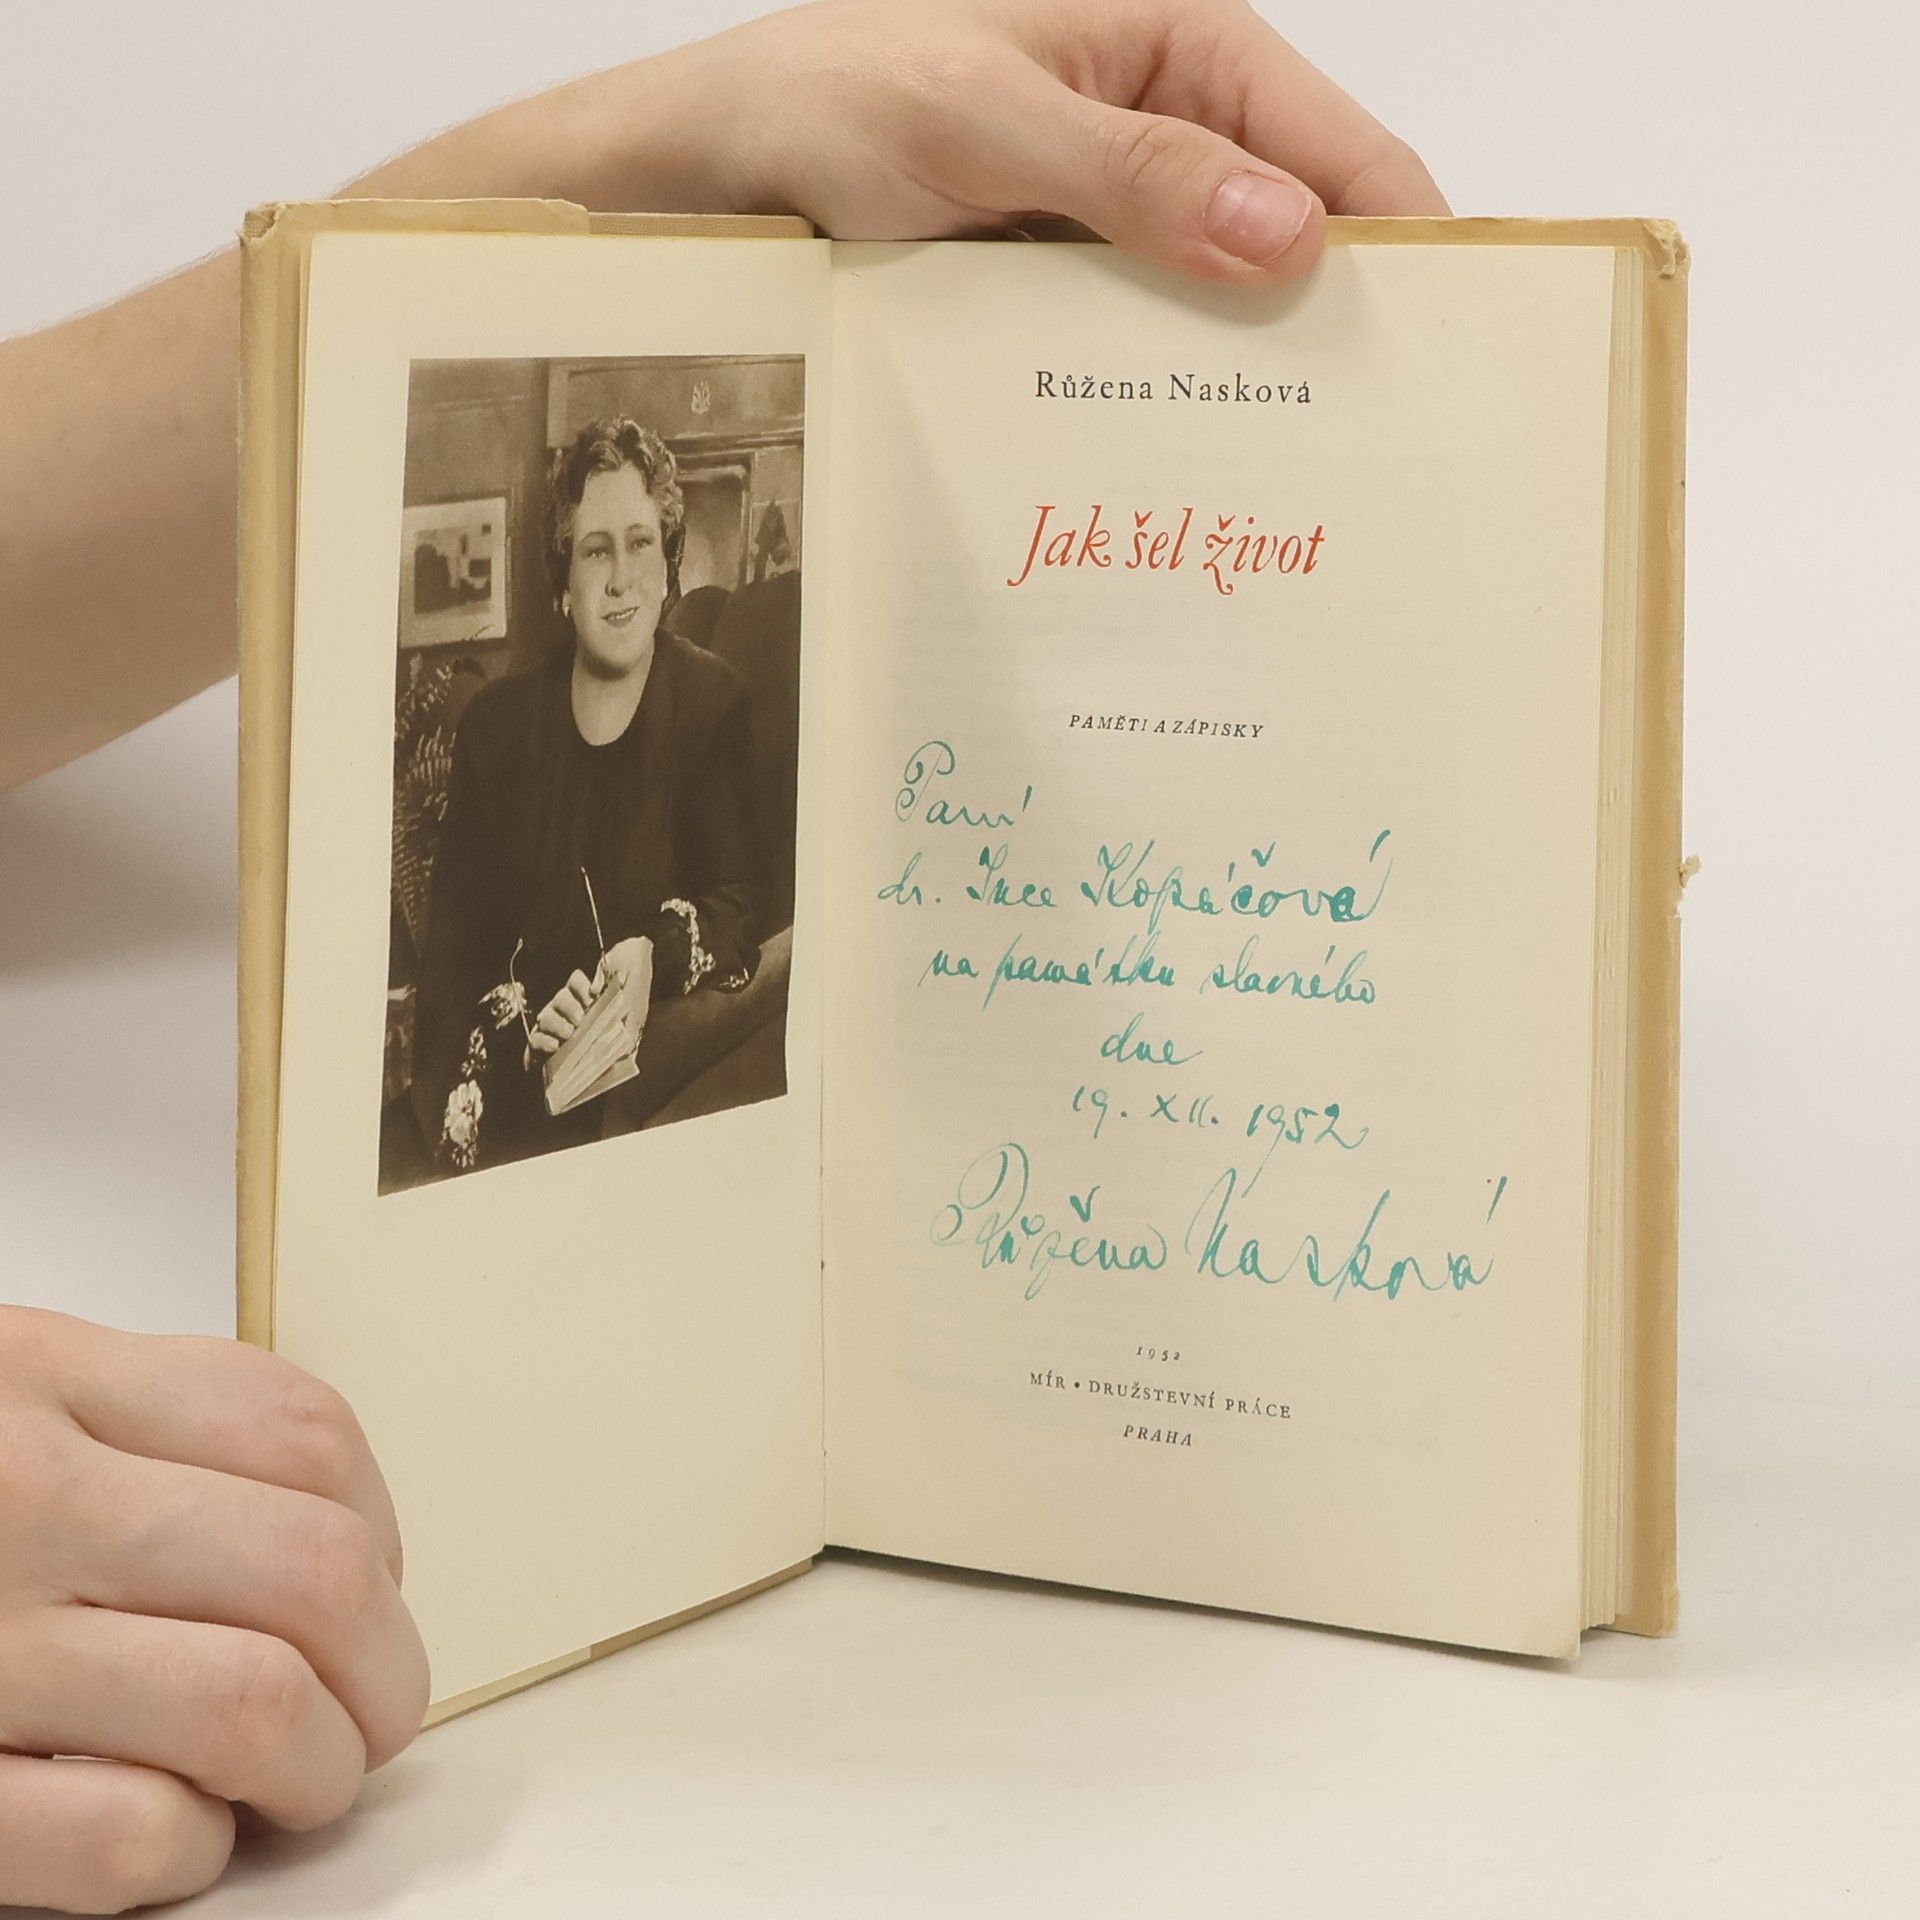 Růžena Nasková
Jak šel život
PAMĚTI A ZÁPISKY
Paní
dr. Ince Kopáčové
na památku slavného
dne
19. XII. 1952
Růžena Nasková
1952
MÍR • DRUŽSTEVNÍ PRÁCE
PRAHA